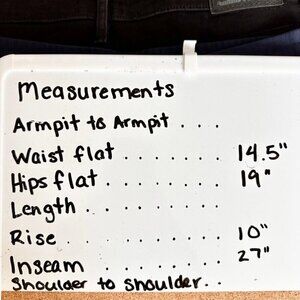 Measurements
Armpit to Armpit . . .
Waist flat . . . . . . . . 14.5"
Hips flat . . . . . . . . 19"
Length . . . . . . . .
Rise . . . . . . 10"
Inseam . . . . . 27"
Shoulder to Shoulder. .